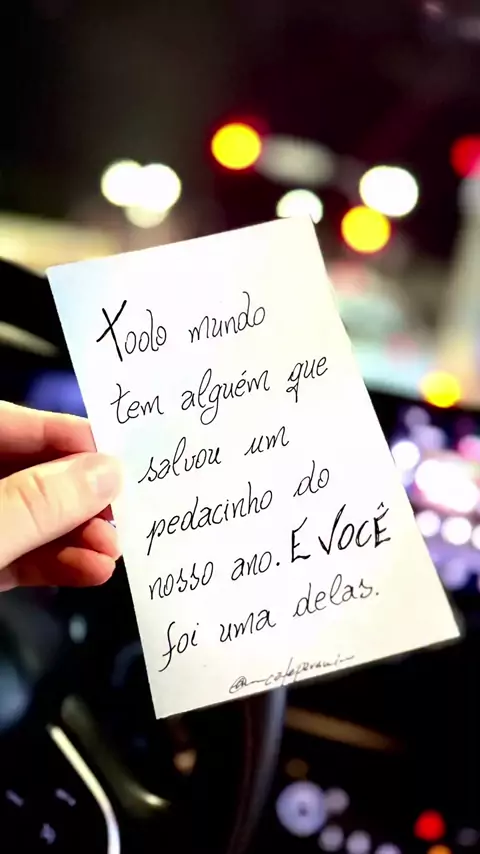 Todo mundo
tem alguém que
salvou um
pedacinho do
nosso ano. E VOCÊ
foi uma delas.